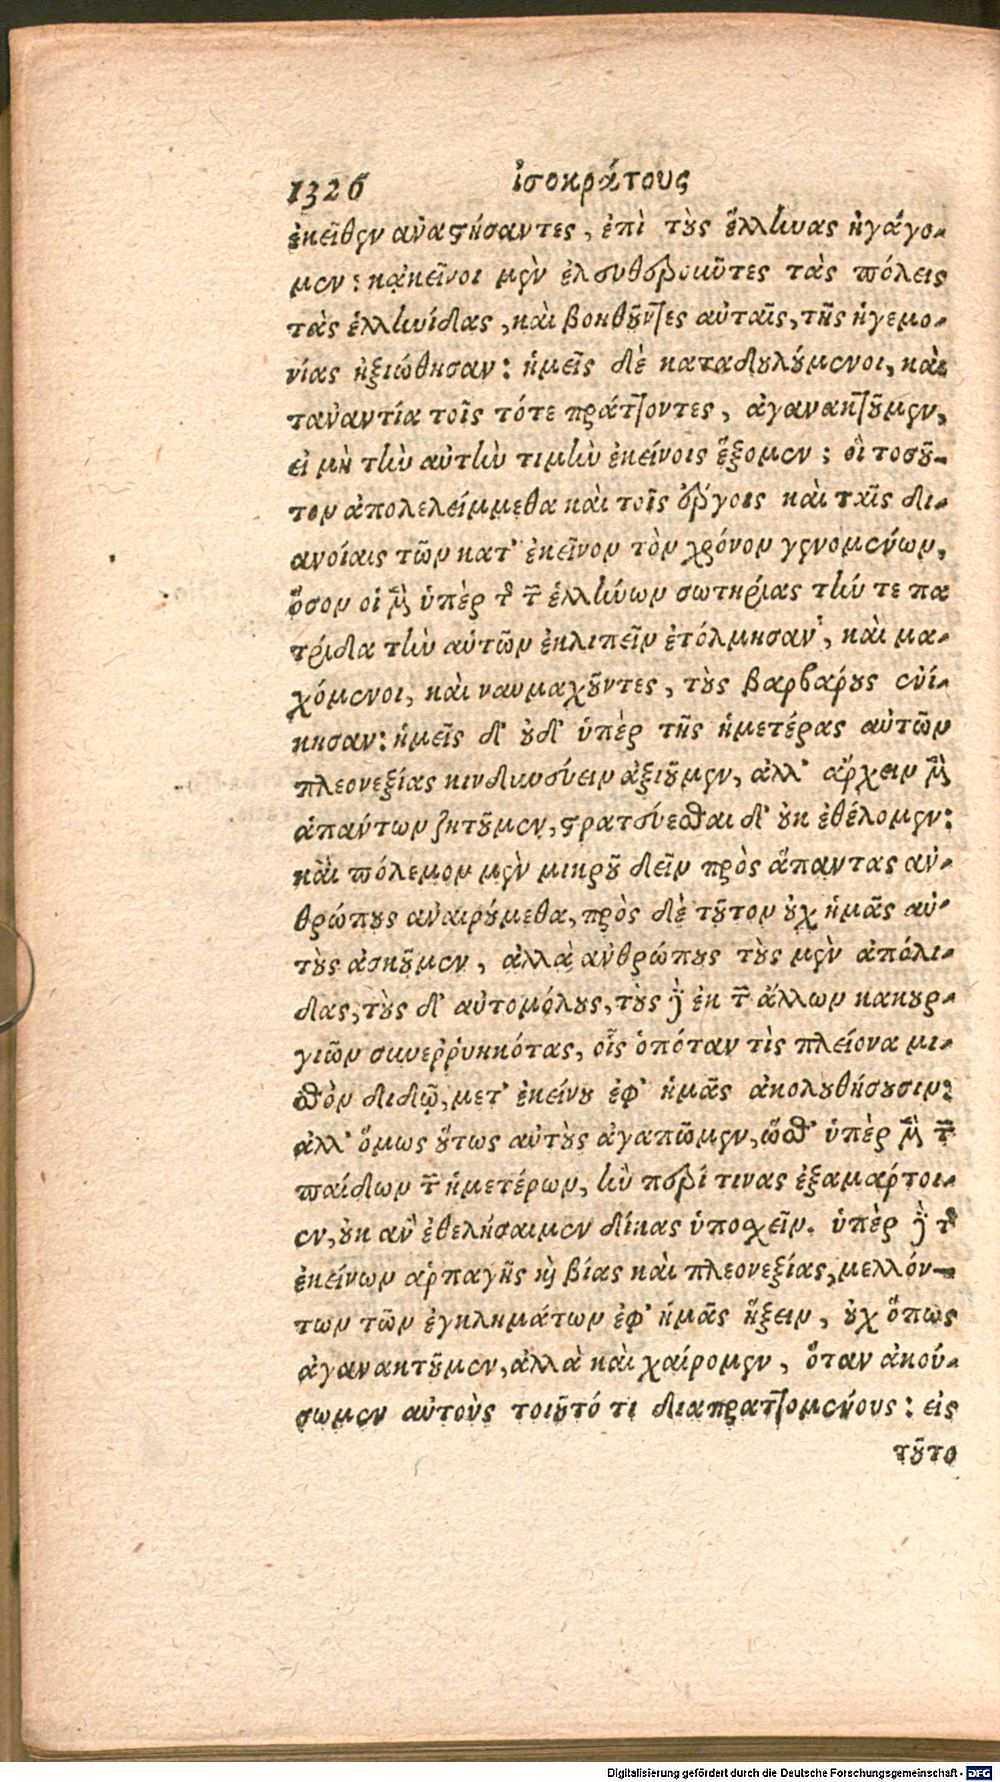 1326 ἰσοκράτους
ἐκεῖθεν ἀναστήσαντες, ἐπὶ τοὺς ἕλληνας ἠγάγο-
μεν: κἀκεῖνοι μὲν ἐλευθεροῦντες τὰς πόλεις
τὰς ἑλληνίδας, καὶ βοηθοῦντες αὐταῖς, τῆς ἡγεμο-
νίας ἠξιώθησαν: ἡμεῖς δὲ καταδουλούμενοι, καὶ
τἀναντία τοῖς τότε πράττοντες, ἀγανακτοῦμεν,
εἰ μὴ τὴν αὐτὴν τιμὴν ἐκείνοις ἕξομεν: οἳ τοσοῦ-
τον ἀπολελείμμεθα καὶ τοῖς ἔργοις καὶ ταῖς δι-
ανοίαις τῶν κατ' ἐκεῖνον τὸν χρόνον γενομένων,
ὅσον οἱ μὲν ὑπὲρ τῆς τῶν ἑλλήνων σωτηρίας τήν τε πα
τρίδα τὴν αὑτῶν ἐκλιπεῖν ἐτόλμησαν, καὶ μα-
χόμενοι, καὶ ναυμαχοῦντες, τοὺς βαρβάρους ἐνί-
κησαν: ἡμεῖς δ' οὐδ' ὑπὲρ τῆς ἡμετέρας αὐτῶν
πλεονεξίας κινδυνεύειν ἀξιοῦμεν, ἀλλ' ἄρχειν μὲν
ἁπάντων ζητοῦμεν, στρατεύεσθαι δ' οὐκ ἐθέλομεν:
καὶ πόλεμον μὲν μικροῦ δεῖν πρὸς ἅπαντας ἀν-
θρώπους ἀναιρούμεθα, πρὸς δὲ τοῦτον οὐχ ἡμᾶς αὐ-
τοὺς ἀσκοῦμεν, ἀλλὰ ἀνθρώπους τοὺς μὲν ἀπόλι-
δας, τοὺς δ' αὐτομόλους, τοὺς δὲ ἐκ τῶν ἄλλων κακουρ-
γιῶν συνερρυηκότας, οἷς ὁπόταν τὶς πλείονα μι-
σθὸν διδῷ, μετ' ἐκείνου ἐφ' ἡμᾶς ἀκολουθήσουσιν:
ἀλλ' ὅμως οὕτως αὐτοὺς ἀγαπῶμεν, ὥσθ' ὑπὲρ μὲν τῶν
παίδων τῶν ἡμετέρων, ἢν περί τινας ἐξαμάρτοι-
εν, οὐκ ἂν ἐθελήσαιμεν δίκας ὑποσχεῖν. ὑπὲρ δὲ τῆς
ἐκείνων ἁρπαγῆς καὶ βίας καὶ πλεονεξίας, μελλόν-
των τῶν ἐγκλημάτων ἐφ' ἡμᾶς ἥξειν, οὐχ ὅπως
ἀγανακτοῦμεν, ἀλλὰ καὶ χαίρομεν, ὅταν ἀκού-
σωμεν αὐτοὺς τοιοῦτό τι διαπραττομένους: εἰς
τοῦτο
Digitalisierung gefördert durch die Deutsche Forschungsgemeinschaft - DFG